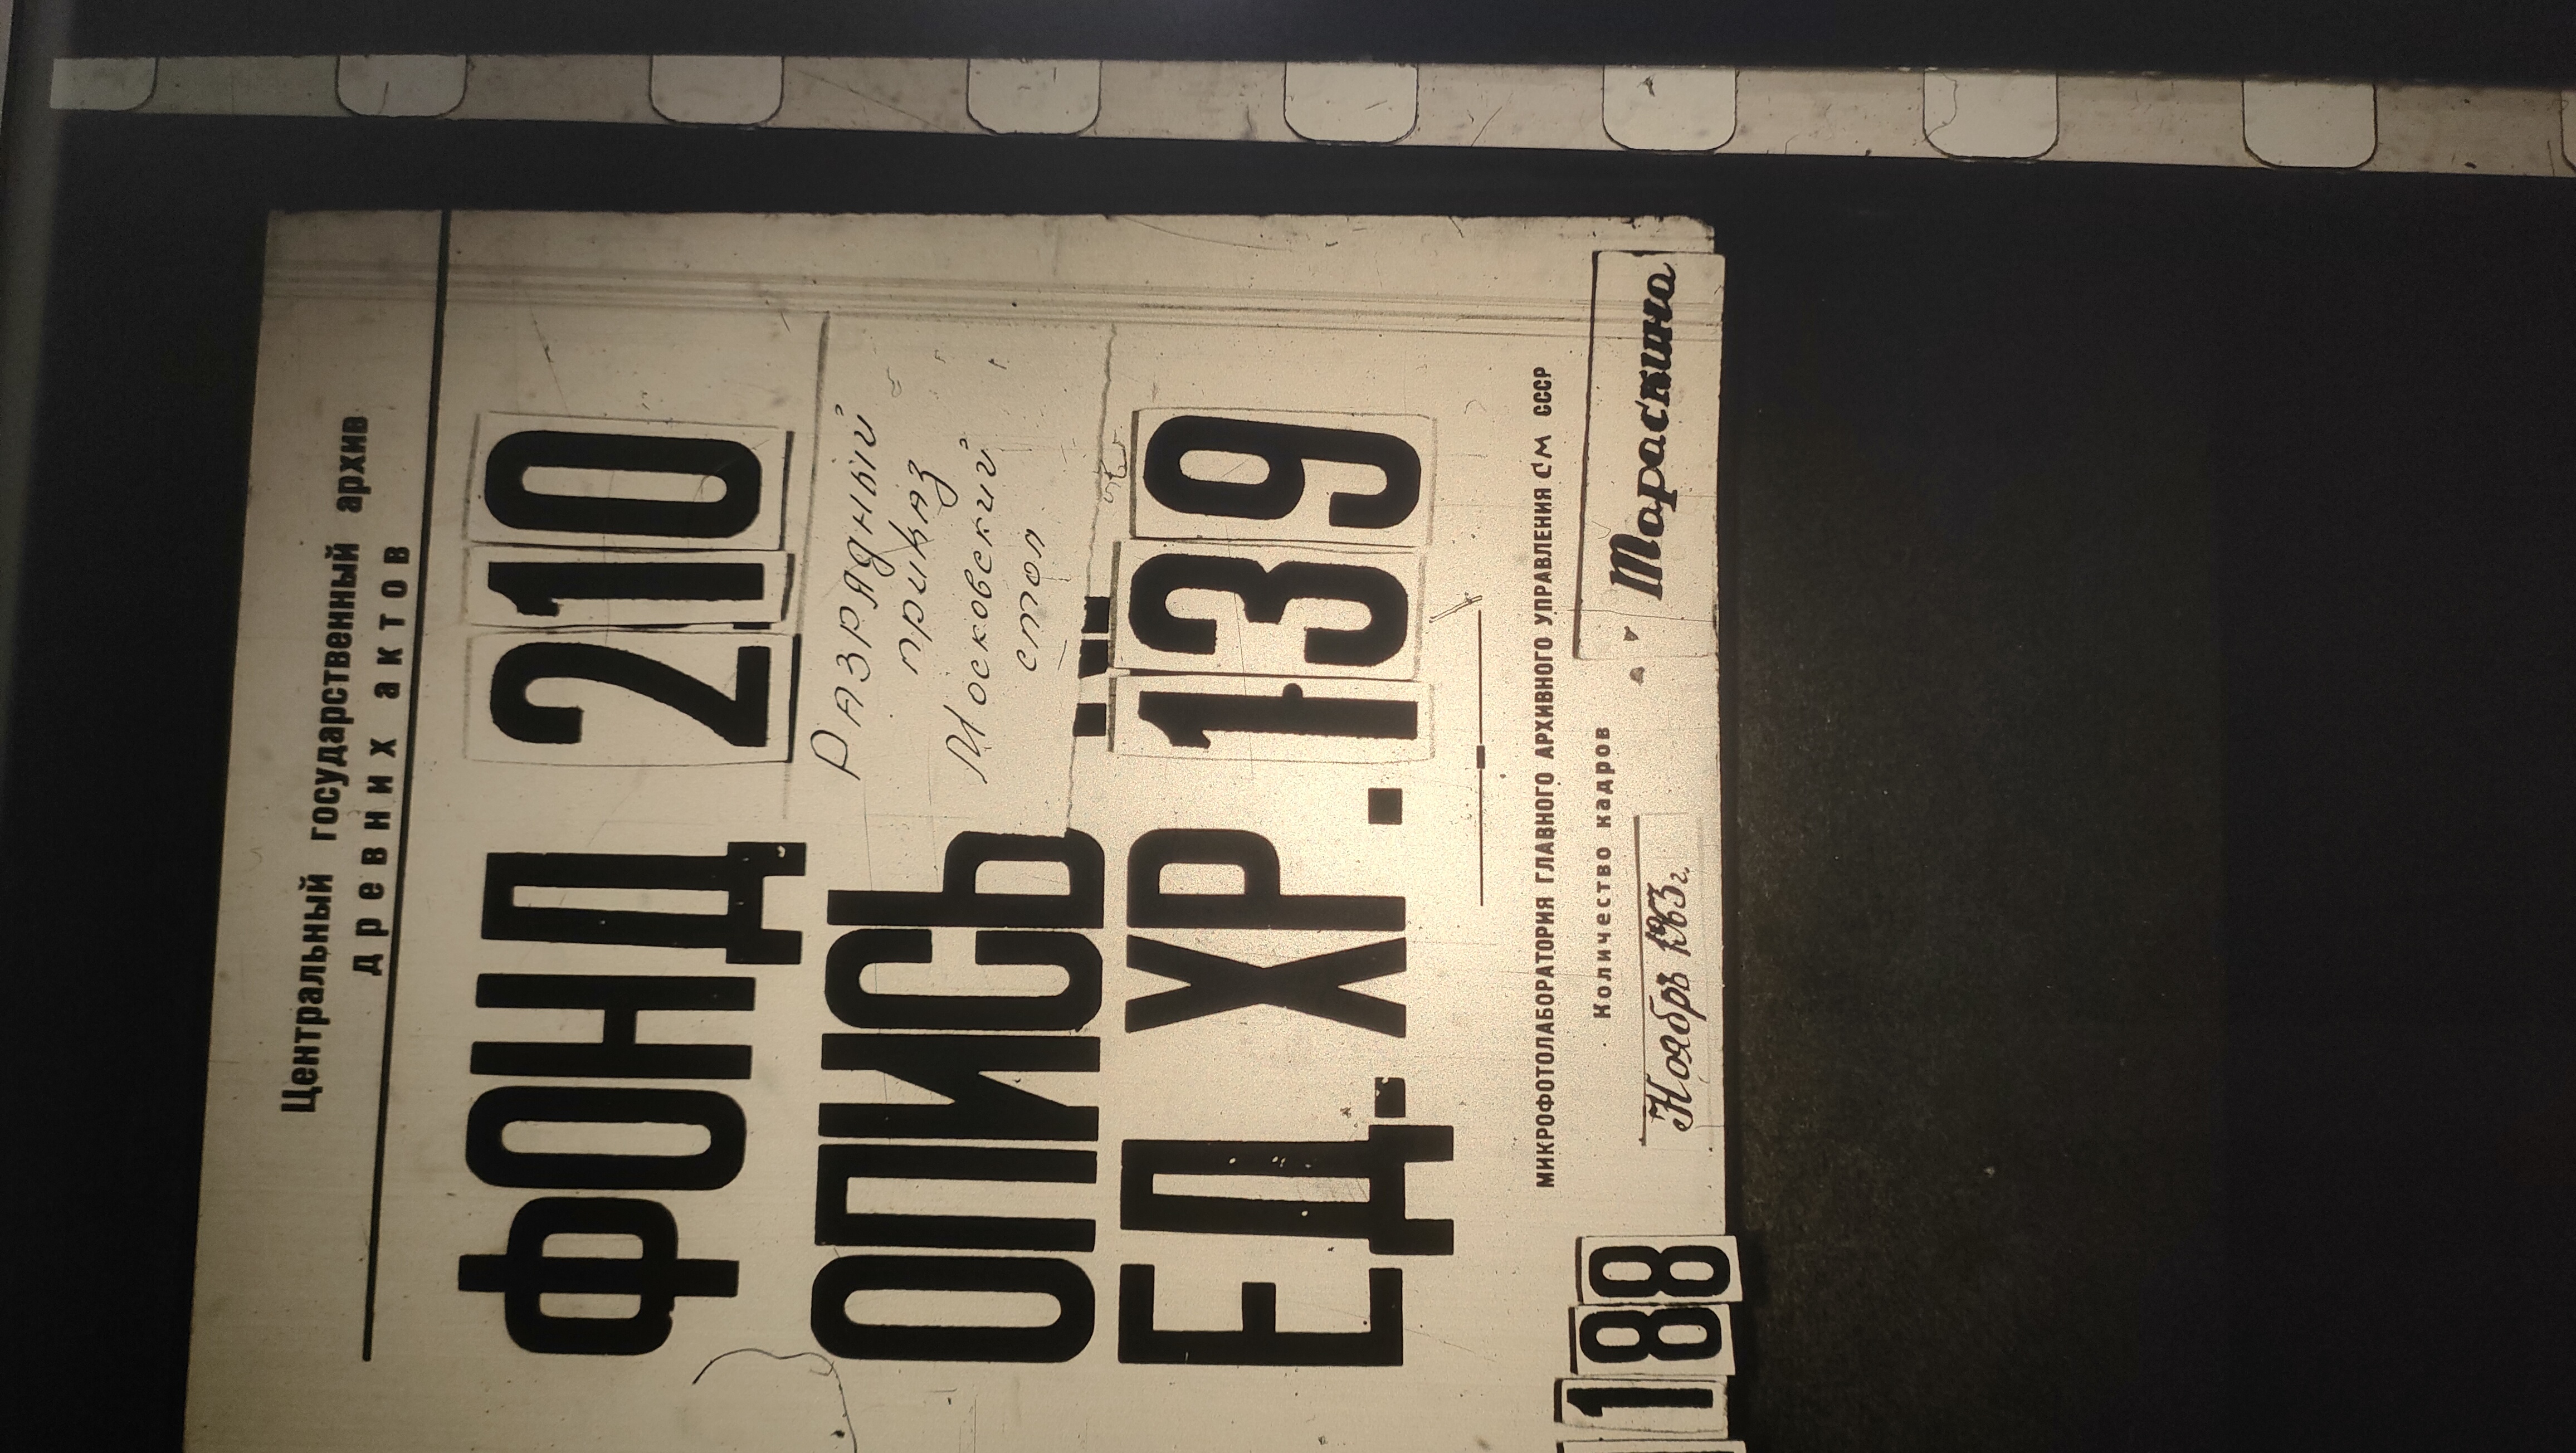 Центральный государственный архив
древних актов
ФОНД 210
ОПИСЬ
Разрядный
приказ
Московский
стол
ЕД. ХР. 139
МИКРОФОТОЛАБОРАТОРИЯ ГЛАВНОГО АРХИВНОГО УПРАВЛЕНИЯ СМ СССР
Количество кадров
188
Ноябрь 1963г.
Тараскина